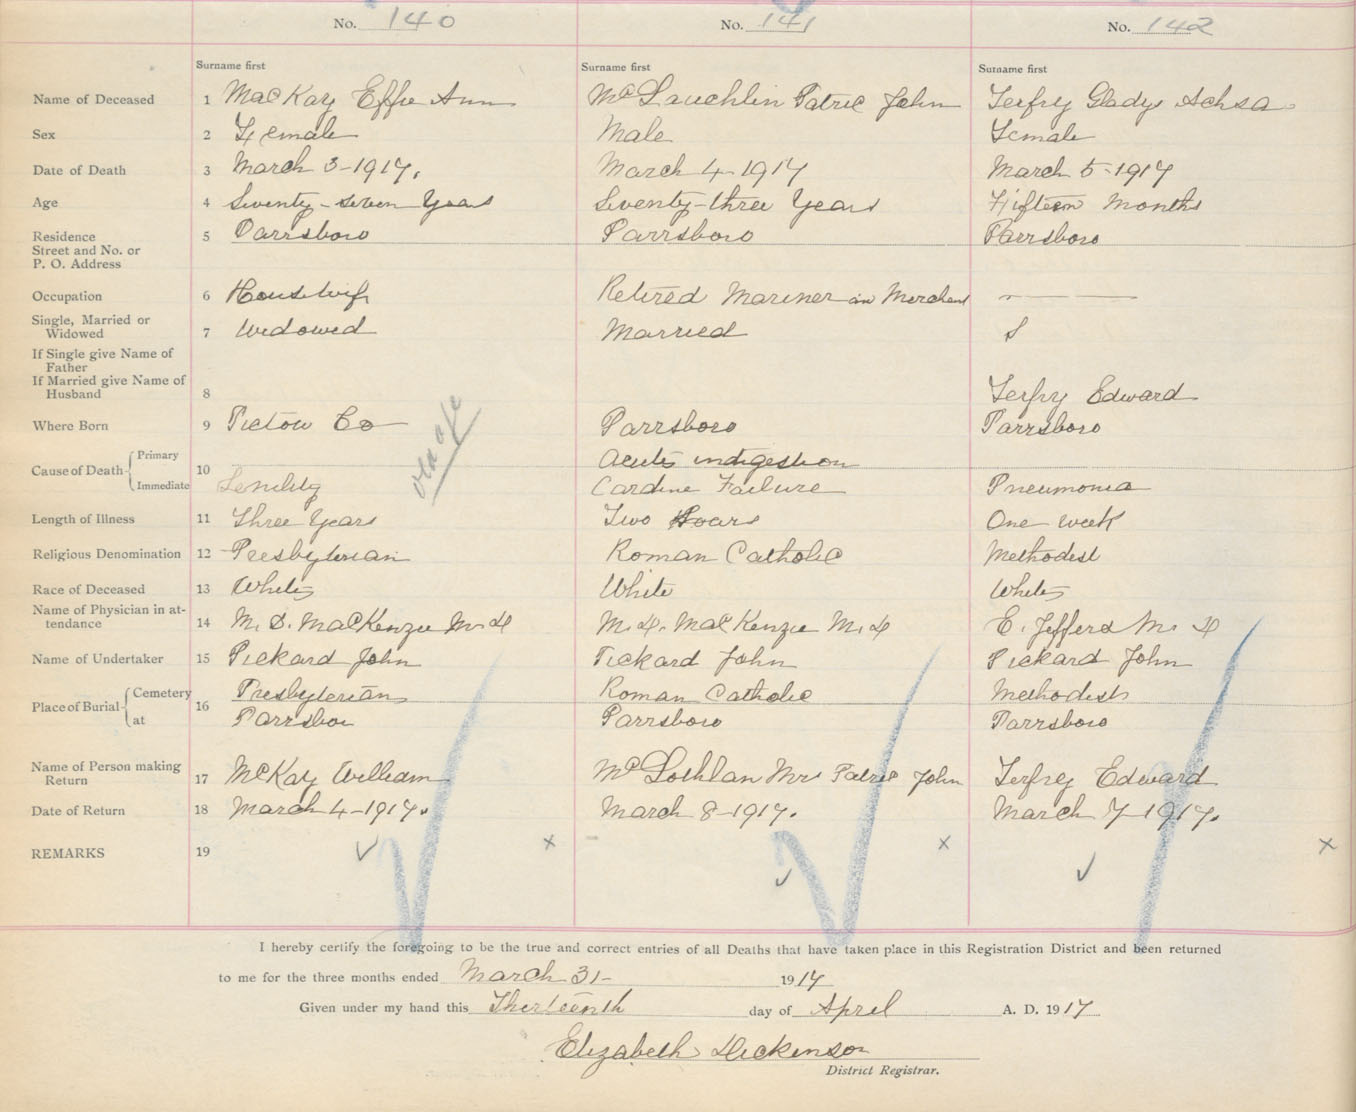 No. 140 No. 141 No. 142
Surname first Surname first Surname first
Name of Deceased 1 MacKay Effie Ann McLauchlin Patric John Terfry Gladys Achsa
Sex 2 Female Male Female
Date of Death 3 March 3-1917. March 4-1917 March 5-1917
Age 4 Seventy-seven Years Seventy-three Years Fifteen Months
Residence 5 Parrsboro Parrsboro Parrsboro
Street and No. or
P. O. Address
Occupation 6 Housewife Retired Mariner in Merchant
Single, Married or
Widowed 7 Widowed Married S
If Single give Name of
Father
If Married give Name of
Husband 8 Terfry Edward
Where Born 9 Pictou Co Parrsboro Parrsboro
old age
Primary Acute indigestion
Cause of Death 10
Immediate Senility Cardine Failure Pneumonia
Length of Illness 11 Three Years Two Hours One week
Religious Denomination 12 Presbyterian Roman Catholic Methodist
Race of Deceased 13 White White White
Name of Physician in at-
tendance 14 M. D. MacKenzie M.D M.D. MacKenzie M.D E. Jefferd M. D
Name of Undertaker 15 Pickard John Pickard John Pickard John
Cemetery Presbyterian Roman Catholic Methodist
Place of Burial 16
at Parrsbor Parrsboro Parrsboro
Name of Person making
Return 17 McKay William McLochlan Mrs Patric John Terfry Edward
Date of Return 18 March 4-1917. March 8-1917. March 7-1917.
REMARKS 19 x x x
I hereby certify the foregoing to be the true and correct entries of all Deaths that have taken place in this Registration District and been returned
to me for the three months ended March 31- 1917
Given under my hand this Thirteenth day of April A. D. 1917
Elizabeth Dickinson
District Registrar.